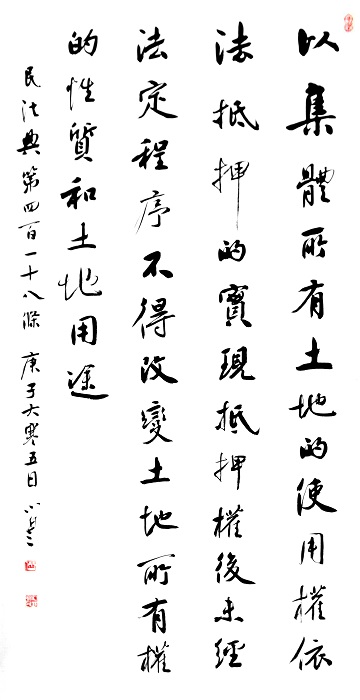 以集體所有土地的使用權依
法抵押的實現抵押權後未經
法定程序不得改變土地所有權
的性質和土地用途
民法典第四百一十八條 庚子大寒五日